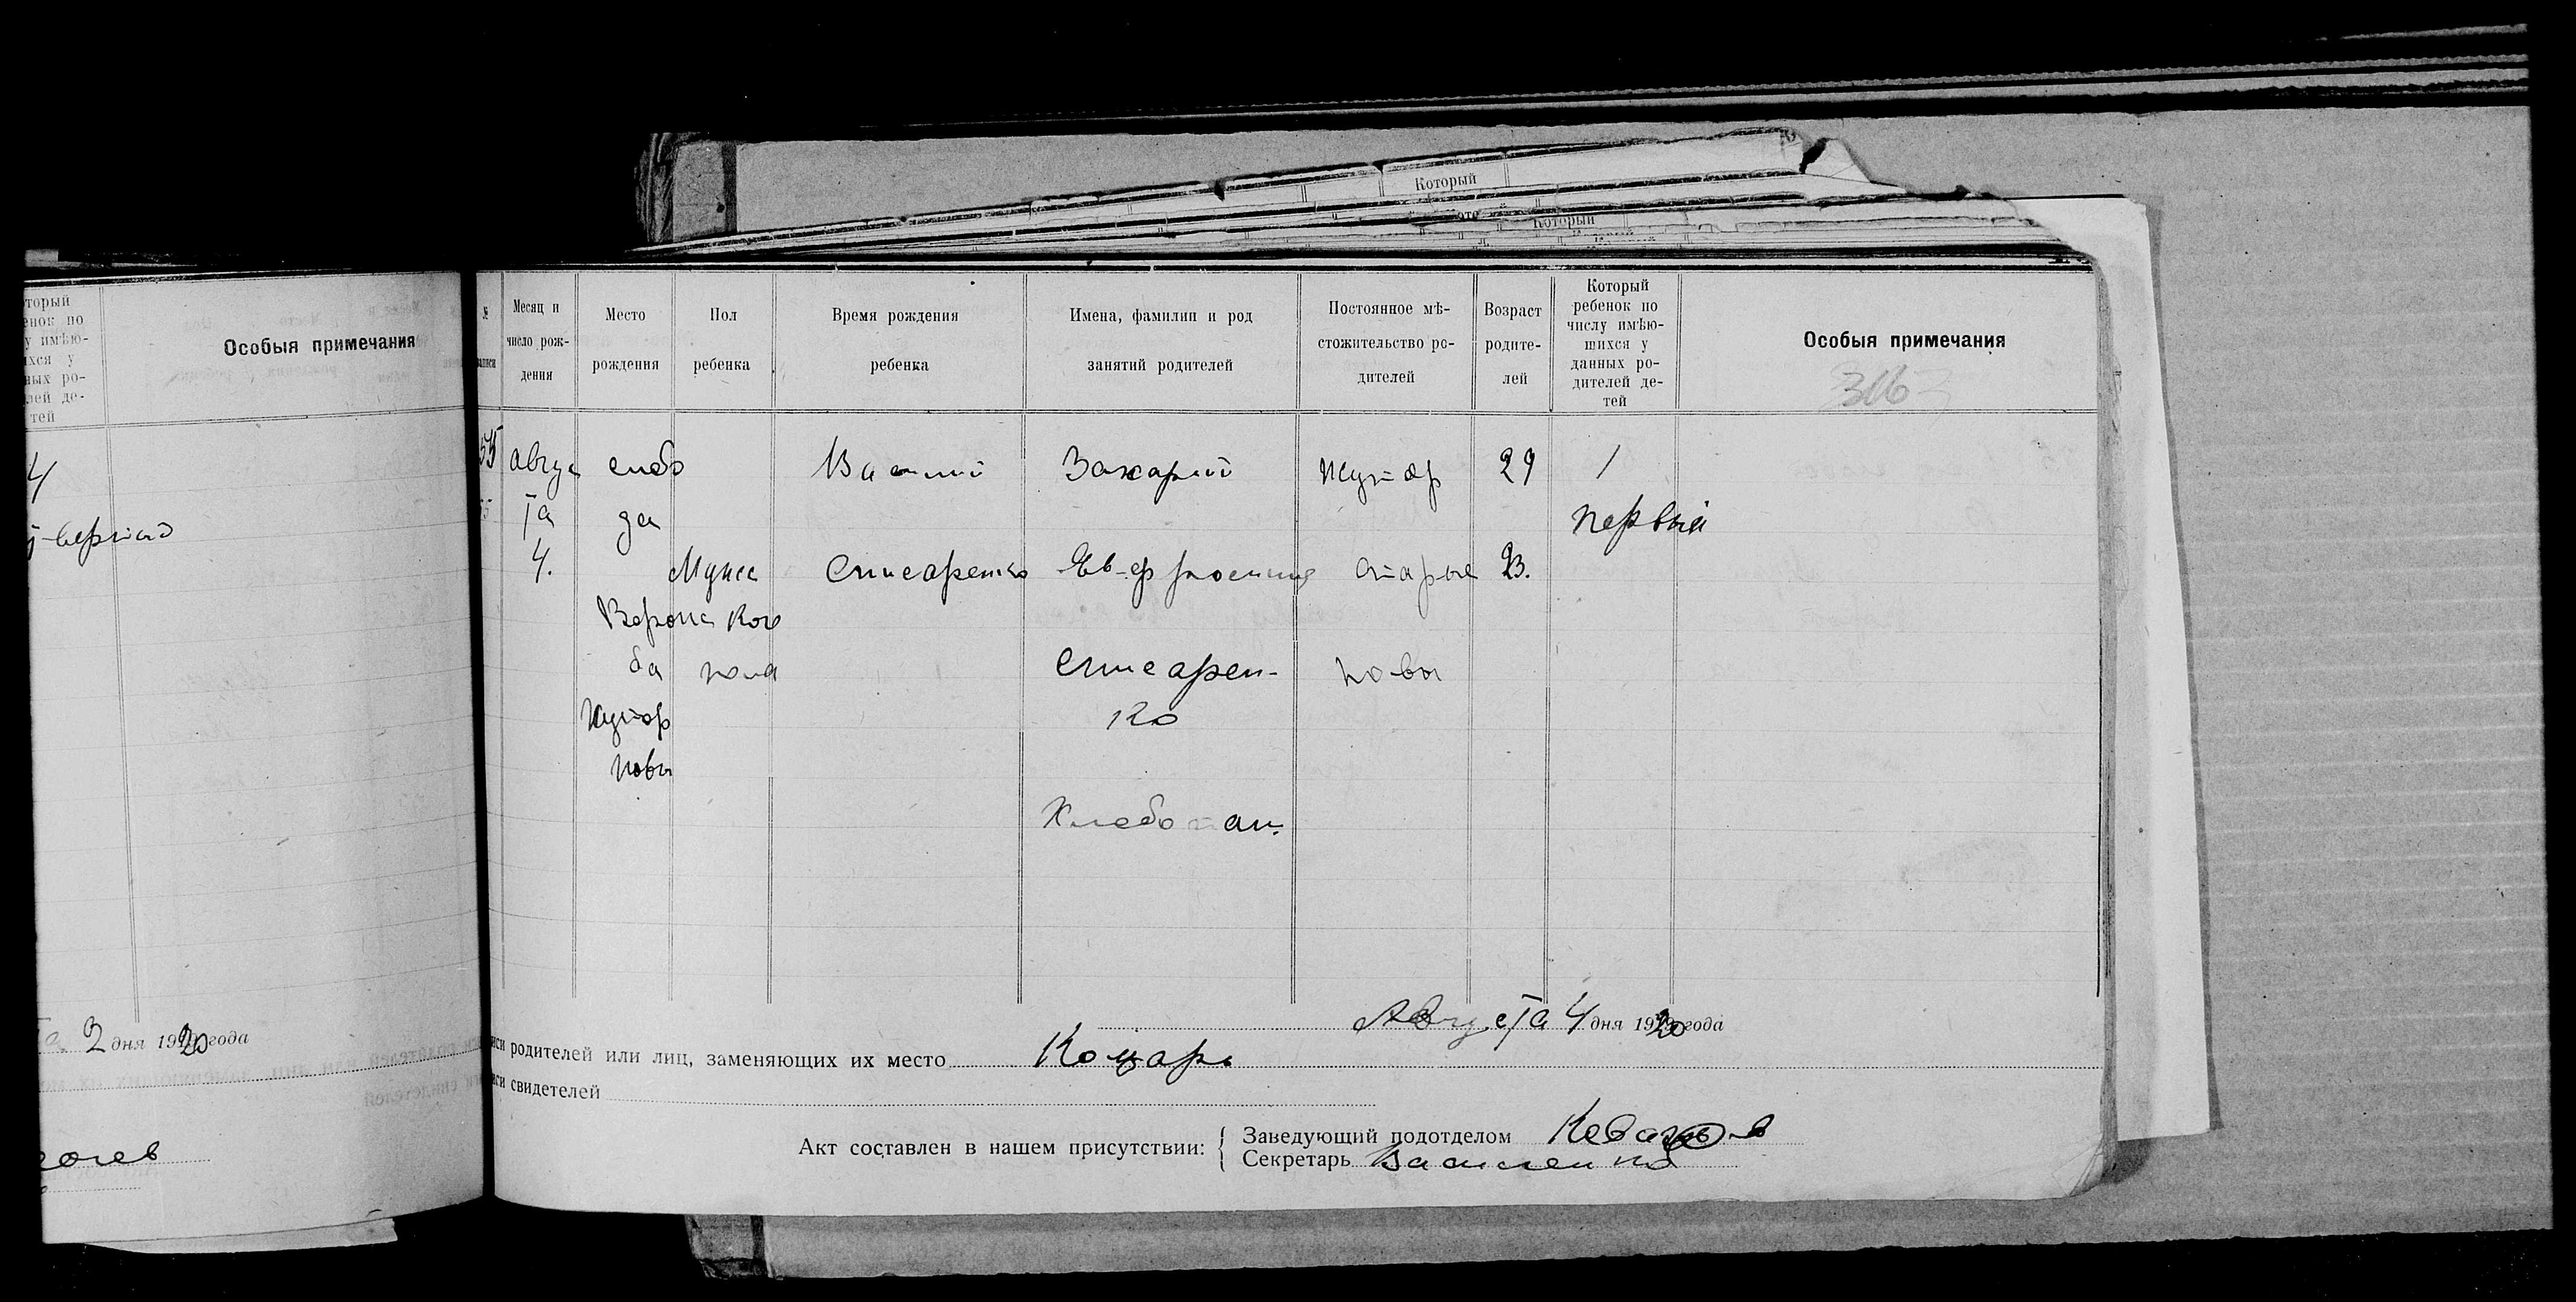 Который
Который
торый
енок по
у имѣю-
ихся у
ных ро-
лей де-
тей
Особыя примечания
4
верный
2 дня 1920 года
№
записи
Месяц и
число рож-
дения
Место
рождения
Пол
ребенка
Время рождения
ребенка
Имена, фамилии и род
занятий родителей
Постоянное мѣ-
стожительство ро-
дителей
Возраст
родите-
лей
Который
ребенок по
числу имѣю-
шихся у
данных ро-
дителей де-
тей
Особыя примечания
316
55 Авгус слобо Василий Захарий Хутор 29 1
та да первый
4. Мужс Слисаренко Евфросиния Старые 23.
Верома кого
ба пола Слисарен- новы
Хутор ко
новы
Хлебопаш.
Августа 4 дня 1920 года
иси родителей или лиц, заменяющих их место Комарь
иси свидетелей
Акт составлен в нашем присутствии:
Заведующий подотделом
Секретарь Василенко